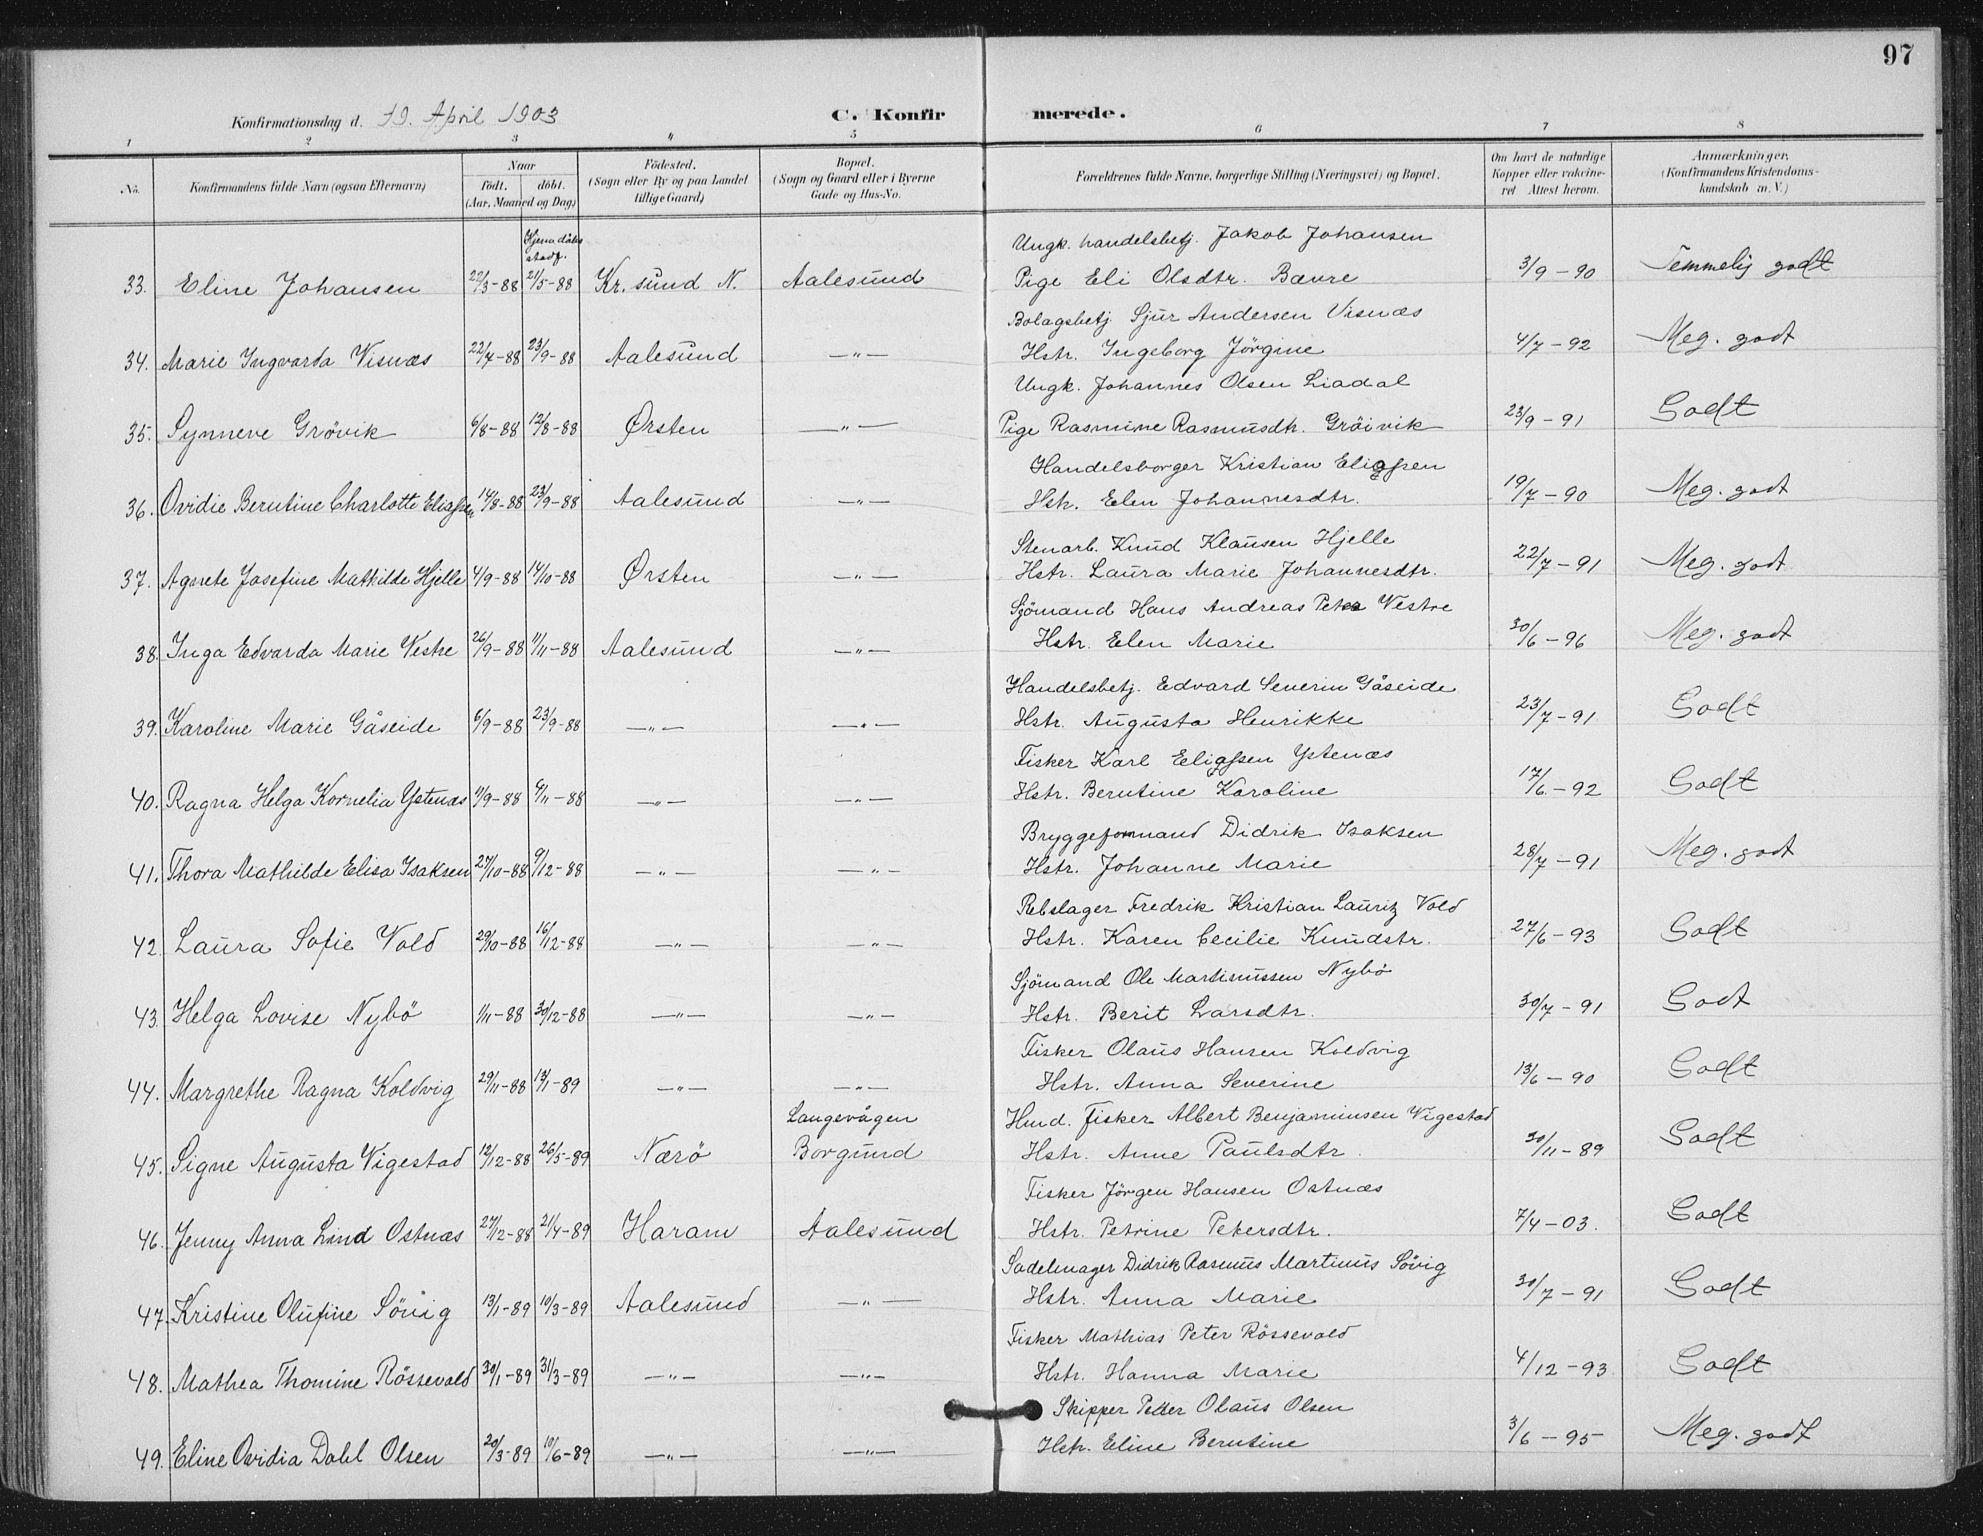 97
Konfirmationsdag d. 19. April 1903
C. Konfirmerede.
1 2 3 " 5 6 7 8
No.
Konfirmandens fulde Navn (ogsaa Efternavn)
Naar
født. døbt.
(Aar, Maaned og Dag)
Fødested.
(Sogn eller By og paa Landet
tillige Gaard)
Bopæl.
(Sogn og Gaard eller i Byerne
Gade og Hus-No.
Forældrenes fulde Navne, borgerlige Stilling (Næringsvei) og Bopæl.
Om havt de naturlige
Kopper eller vakcine-
ret Attest herom.
Anmærkninger.
(Konfirmandens Kristendoms-
kundskab m. V.)
Hjemedøbt
stadf.
Ungk. handelsbetj. Jakob Johansen
33. Eline Johansen 22/3-88 21/5-88 Kr.sund N. Aalesund Pige Eli Olsdtr. Bævre 3/9-90 Temmelig godt
Bolagsbetj. Sjur Andersen Visnæs
34. Marie Ingvarda Visnæs 22/4-88 23/9-88 Aalesund —"— Hstr. Ingeborg Jörgine 4/7-92 Meg. godt
Ungk. Johannes Olsen Liadal
35. Synneve Grövik 6/8-88 12/8-88 Ørsten —"— Pige Rasmine Rasmusdtr. Gröivik 23/9-91 Godt
Handelsborger Kristian Eliassen
36. Ovidie Berntine Charlotte Eliassen 14/8-88 23/9-88 Aalesund —"— Hstr. Elen Johannesdtr. 19/7-90 Meg. godt
Stenarb. Knud Klausen Hjelle
37. Agnete Josefine Mathilde Hjelle 4/9-88 14/10-88 Ørsten —"— Hstr. Laura Marie Johannesdtr. 22/7-91 Meg. godt
Sjömand Hans Andreas Peter Vestre
38. Inga Edvarda Marie Vestre 26/9-88 11/11-88 Aalesund —"— Hstr. Elen Marie 30/6-96 Meg. godt
Handelsbetj. Edvard Severin Gåseide
39. Karoline Marie Gåseide 6/9-88 23/9-88 —"— —"— Hstr. Augusta Henrikke 23/7-91 Godt
Fisker Karl Eliassen Ystenæs
40. Ragna Helga Kornelia Ystenæs 11/9-88 6/11-88 —"— —"— Hstr. Berntine Karoline 17/6-92 Godt
Bryggeformand Didrik Isaksen
41. Thora Mathilde Elisa Isaksen 27/10-88 9/12-88 —"— —"— Hstr. Johanne Marie 28/7-91 Meg. godt
Rebslager Fredrik Kristian Lauritz Vold
42. Laura Sofie Vold 29/10-88 16/12-88 —"— —"— Hstr. Karen Cecilie Knudstr. 27/6-93 Godt
Sjömand Ole Martinussen Nybö
43. Helga Lovise Nybö 1/11-88 30/12-88 —"— —"— Hstr. Berit Larsdtr. 30/7-91 Godt
Fisker Olaus Hansen Koldvig
44. Margrethe Ragna Koldvig 29/11-88 13/1-89 —"— —"— Hstr. Anna Severine 13/6-90 Godt
Langevågen Hmd. Fisker Albert Benjaminsen Vigestad
45. Signe Augusta Vigestad 12/12-88 26/5-89 Nærö Borgund Hstr. Anne Paulsdtr. 30/11-89 Godt
Fisker Jörgen Hansen Ostnæs
46. Jenny Anna Lind Ostnæs 27/12-88 21/4-89 Haram Aalesund Hstr. Petrine Petersdtr. 7/4-03. Godt
Sadelmager Didrik Rasmus Martinus Sövig
47. Kristine Olufine Sövig 13/1-89 10/3-89 Aalesund —"— Hstr. Anna Marie 30/7-91 Godt
Fisker Mathias Peter Rössevold
48. Mathea Thomine Rössevold 30/1-89 31/3-89 —"— —"— Hstr. Hanna Marie 4/12-93 Godt
Skipper Petter Olaus Olsen
49. Eline Ovidia Dahl Olsen 20/3-89 10/6-89 —"— —"— Hstr. Eline Berntine 3/6-95 Meg. godt